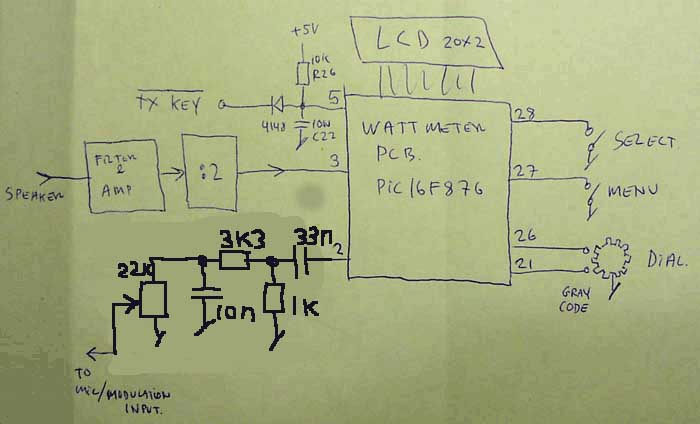 +5V
LCD 20x2
10K
R26
TX KEY
4148
5
10N
C22
WATTMETER
PCB.
PIC16F876
28
SELECT.
SPEAKER
FILTER
&
AMP
:2
3
27
MENU
26
21
DIAL.
GRAY
CODE
3K3
33n
2
22K
10n
1K
TO
MIC/MODULATION
INPUT.